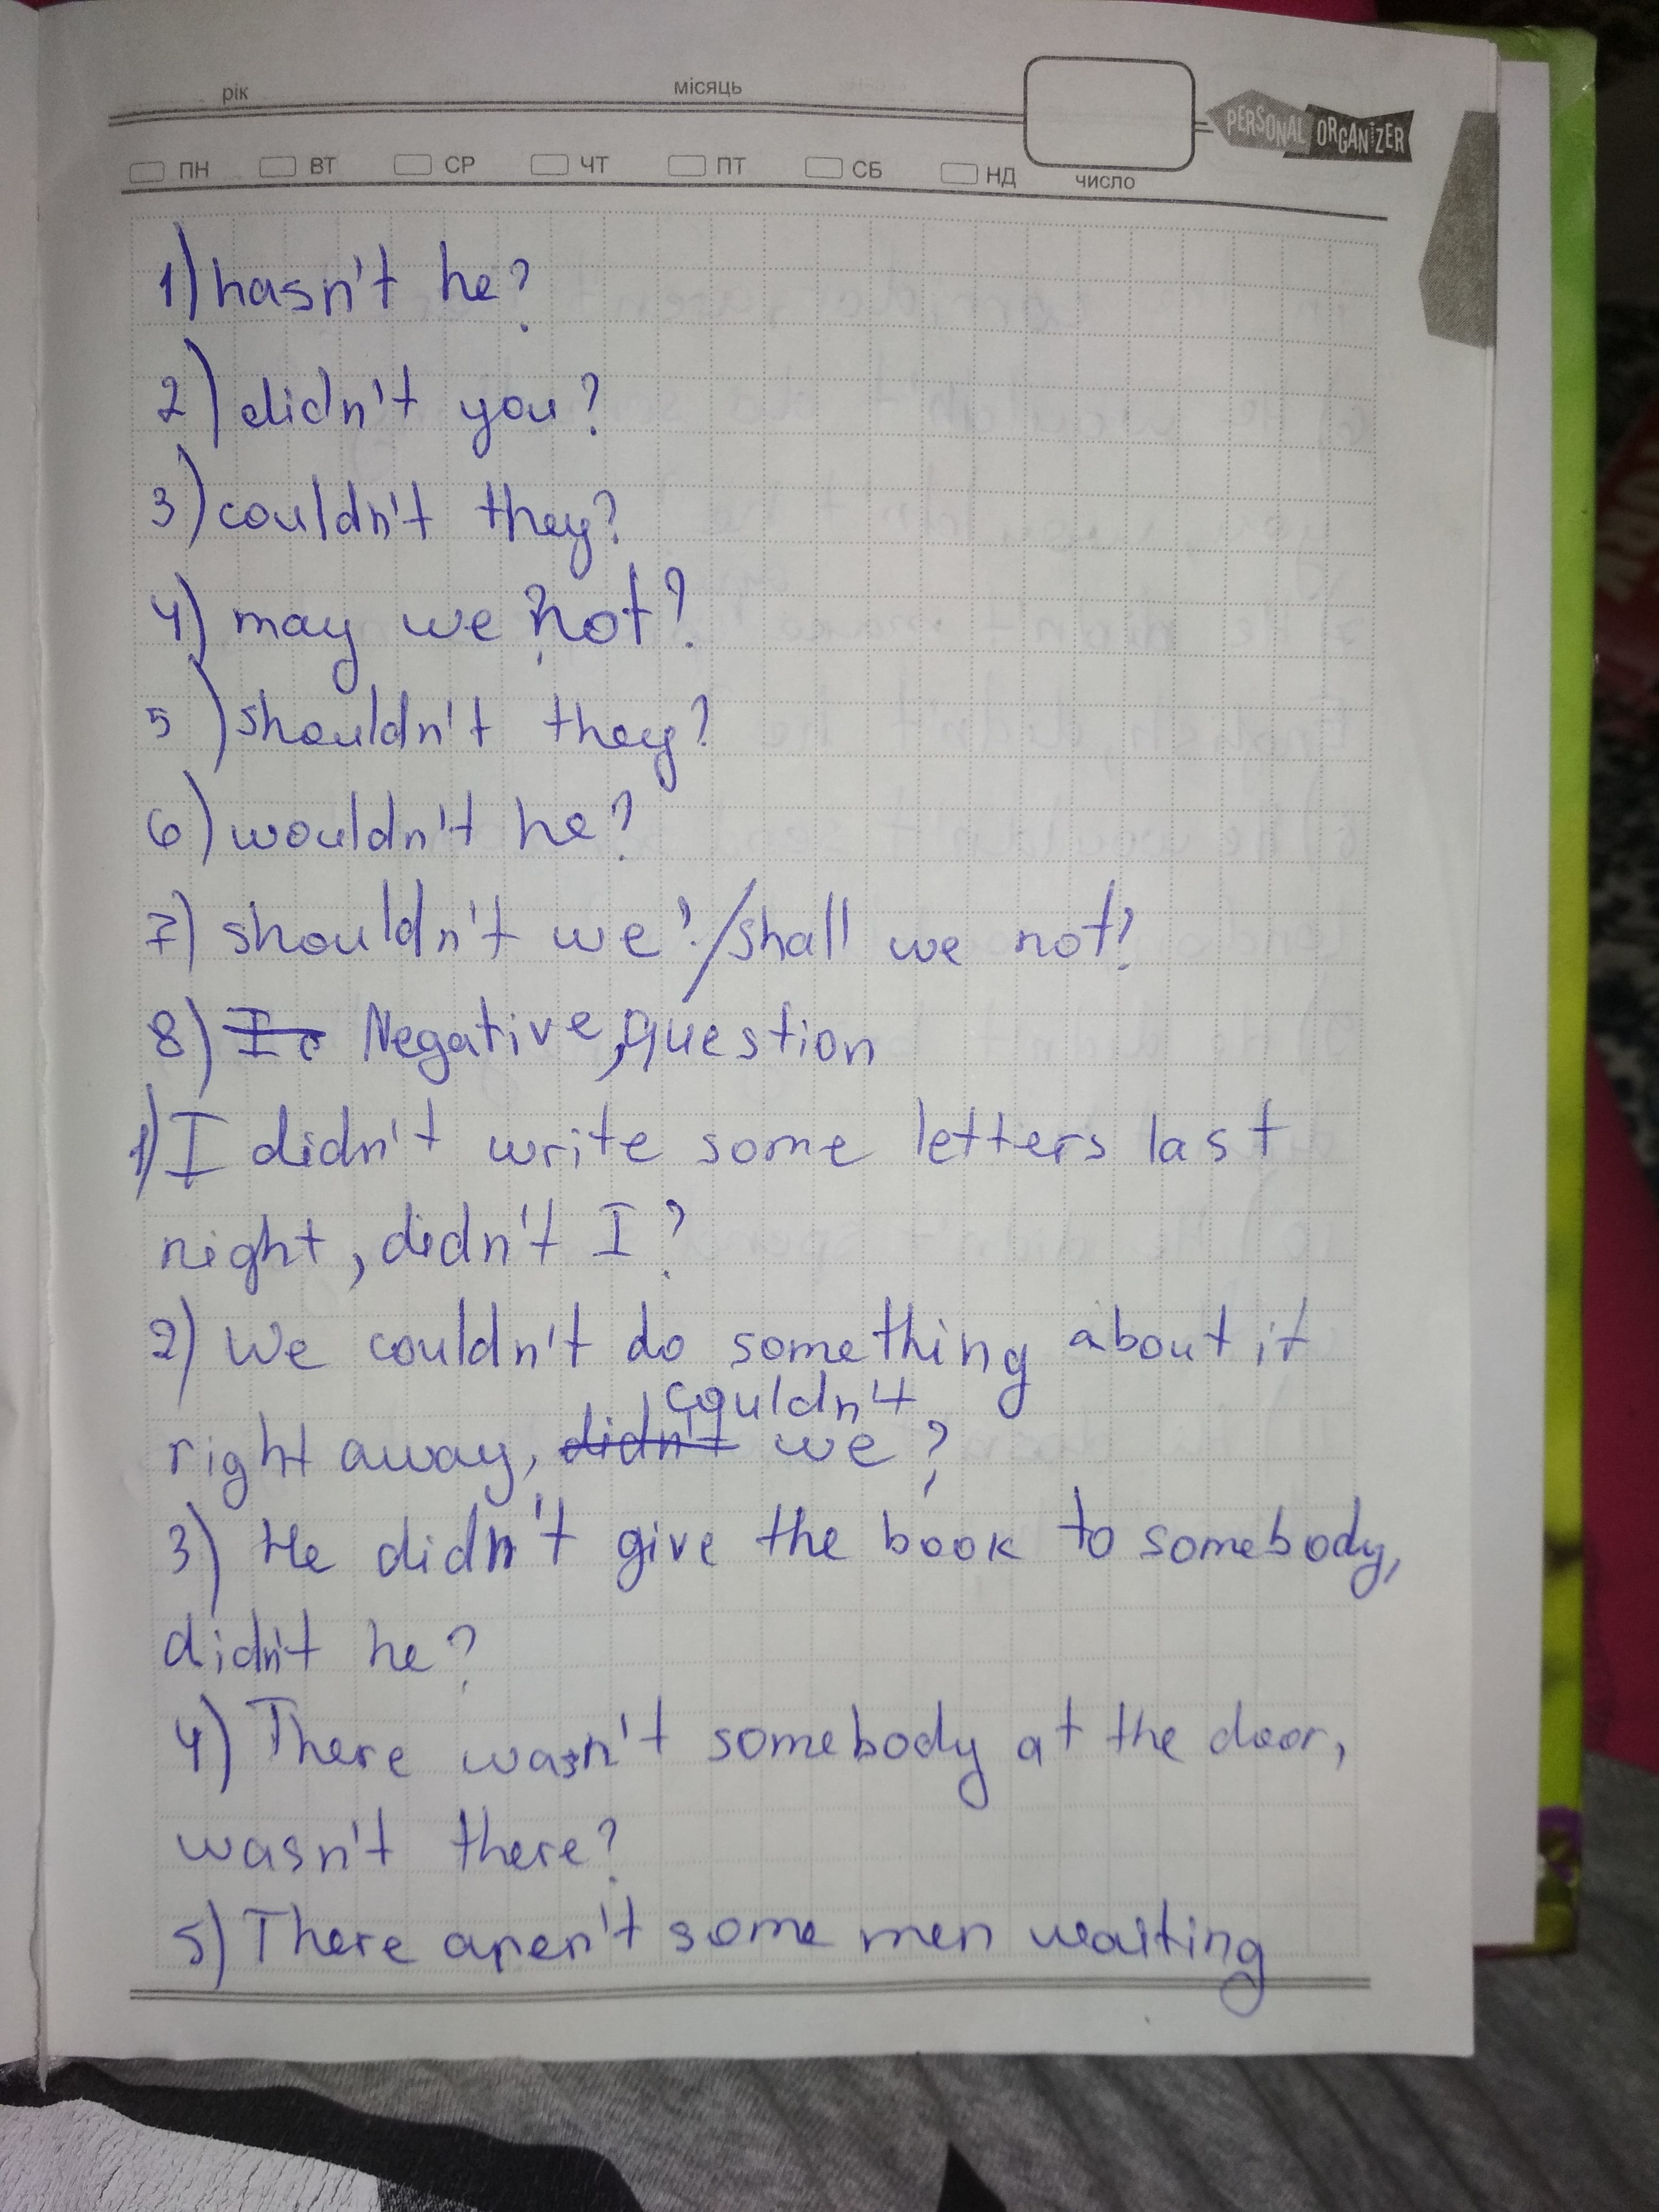 рік місяць
PERSONAL ORGANIZER
ПН ВТ СР ЧТ ПТ СБ НД число
1) hasn't he?
2) didn't you?
3) couldn't they?
4) may we not?
5) shouldn't they?
6) wouldn't he?
7) shouldn't we?/shall we not?
8) Negative, question
1) I didn't write some letters last
night, didn't I?
2) We couldn't do something about it
couldn't
right away, didn't we?
3) He didn't give the book to somebody,
didn't he?
4) There wasn't somebody at the door,
wasn't there?
5) There aren't some men waiting